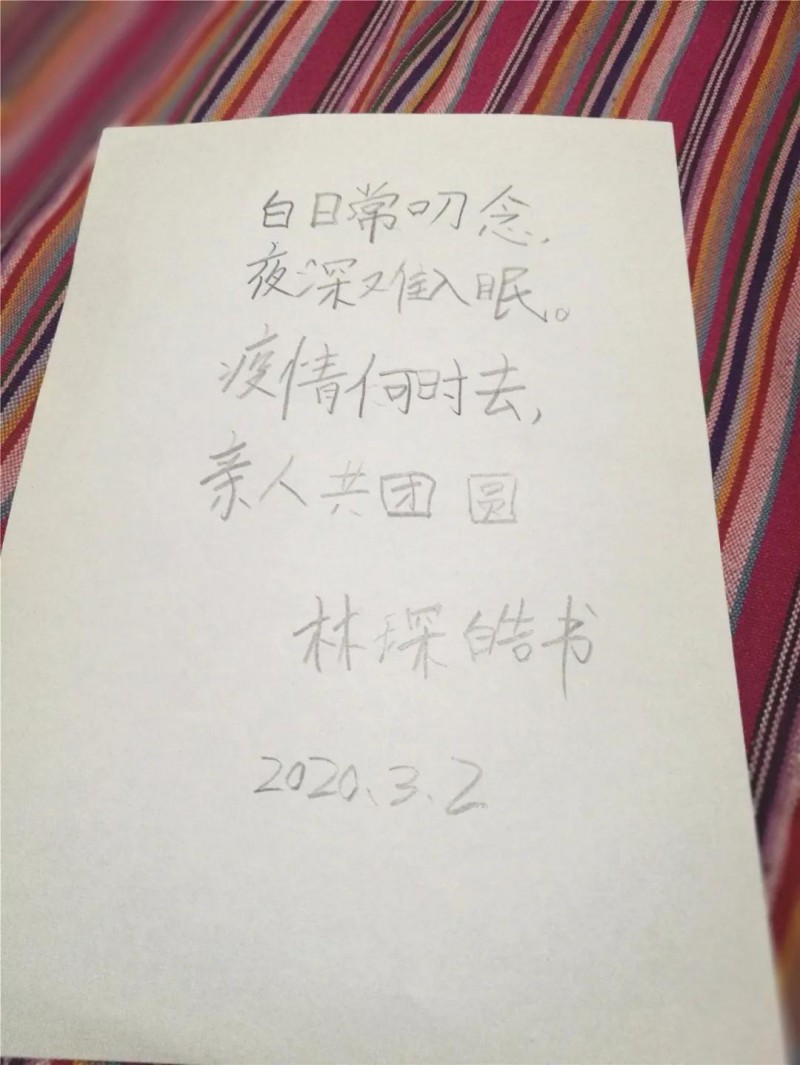 白日常叨念,
夜深难入眠。
疫情何时去,
亲人共团圆
林琛皓书
2020.3.2